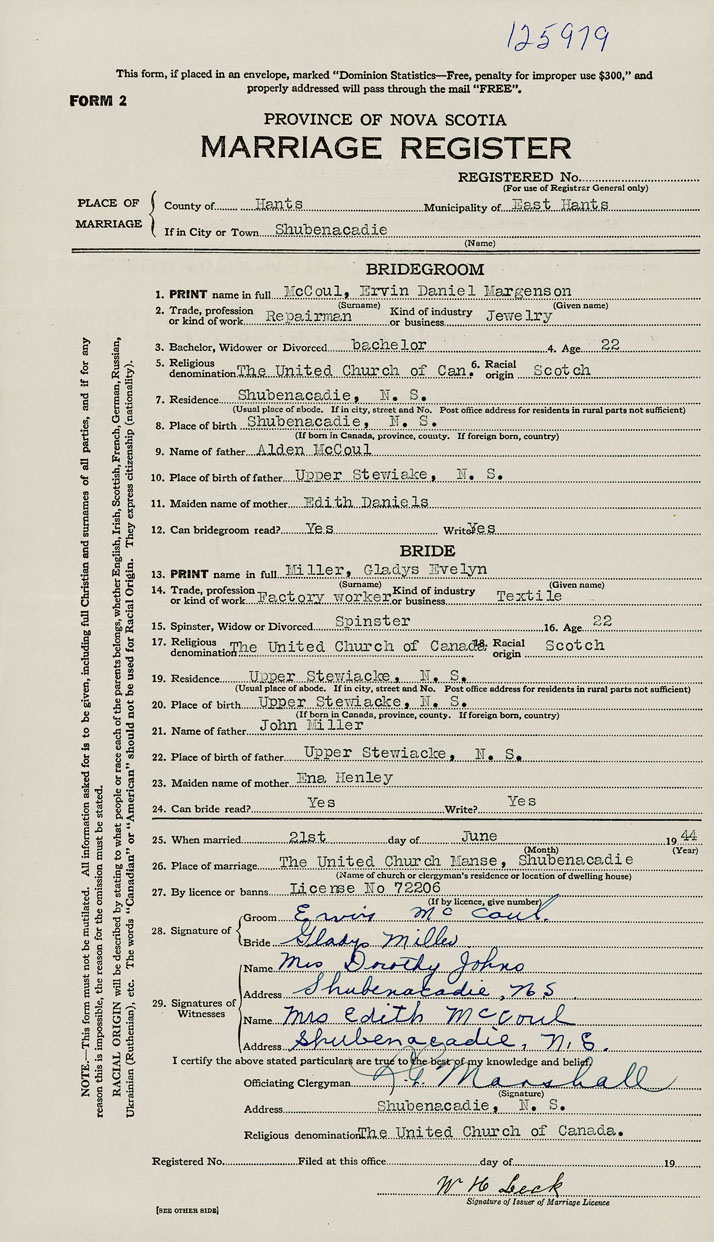 125979
This form, if placed in an envelope, marked "Dominion Statistics—Free, penalty for improper use $300," and
properly addressed will pass through the mail "FREE".
FORM 2
PROVINCE OF NOVA SCOTIA
MARRIAGE REGISTER
REGISTERED No.
(For use of Registrar General only)
PLACE OF MARRIAGE
County of Hants Municipality of East Hants
If in City or Town Shubenacadie
(Name)
BRIDEGROOM
1. PRINT name in full McCoul, Ervin Daniel Margenson
(Surname) (Given name)
2. Trade, profession or kind of work Repairman Kind of industry or business Jewelry
3. Bachelor, Widower or Divorced bachelor 4. Age 22
5. Religious denomination The United Church of Can. 6. Racial origin Scotch
7. Residence Shubenacadie, N. S.
(Usual place of abode. If in city, street and No. Post office address for residents in rural parts not sufficient)
8. Place of birth Shubenacadie, N. S.
(If born in Canada, province, county. If foreign born, country)
9. Name of father Alden McCoul
10. Place of birth of father Upper Stewiake, N. S.
11. Maiden name of mother Edith Daniels
12. Can bridegroom read? Yes Write? Yes
BRIDE
13. PRINT name in full Miller, Gladys Evelyn
(Surname) (Given name)
14. Trade, profession or kind of work Factory worker Kind of industry or business Textile
15. Spinster, Widow or Divorced Spinster 16. Age 22
17. Religious denomination The United Church of Canada 18. Racial origin Scotch
19. Residence Upper Stewiacke, N. S.
(Usual place of abode. If in city, street and No. Post office address for residents in rural parts not sufficient)
20. Place of birth Upper Stewiacke, N. S.
(If born in Canada, province, county. If foreign born, country)
21. Name of father John Miller
22. Place of birth of father Upper Stewiacke, N. S.
23. Maiden name of mother Ena Henley
24. Can bride read? Yes Write? Yes
25. When married 21st day of June 1944
(Month) (Year)
26. Place of marriage The United Church Manse, Shubenacadie
(Name of church or clergyman's residence or location of dwelling house)
27. By licence or banns License No 72206
(If by licence, give number)
28. Signature of
Groom Ervin McCoul.
Bride Gladys Miller
29. Signatures of Witnesses
Name Mrs Dorothy Johns
Address Shubenacadie, NS
Name Mrs Edith McCoul
Address Shubenacadie, N.S.
I certify the above stated particulars are true to the best of my knowledge and belief.
Officiating Clergyman Marshall
(Signature)
Address Shubenacadie, N. S.
Religious denomination The United Church of Canada.
Registered No. Filed at this office day of 19
W H Leck
Signature of Issuer of Marriage Licence
[SEE OTHER SIDE]
NOTE.—This form must not be mutilated. All information asked for is to be given, including full Christian and surnames of all parties, and if for any
reason this is impossible, the reason for the omission must be stated.
RACIAL ORIGIN will be described by stating to what people or race each of the parents belongs, whether English, Irish, Scottish, French, German, Russian,
Ukrainian (Ruthenian), etc. The words "Canadian" or "American" should not be used for Racial Origin. They express citizenship (nationality).